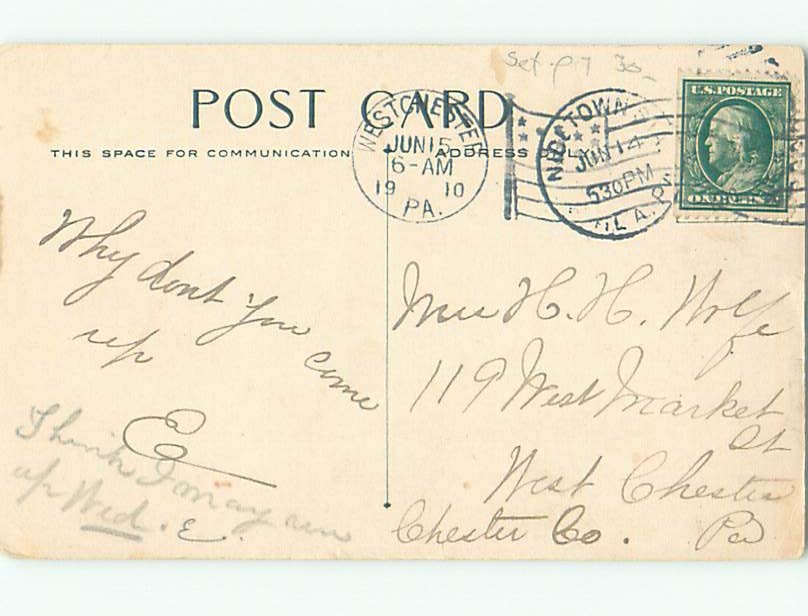 Set-pt 30-
POST CARD
THIS SPACE FOR COMMUNICATION
ADDRESS ONLY
WEST CHESTER
JUN 15
6-AM
19 10
PA.
NICETOWN
JUN 14
530PM
PHILA. PA.
U.S. POSTAGE
ONE CENT
Why dont you
come
up
E
I think I may run
up Wed. E.
H. H. Wolfe
119 West Market
St
West Chester
Chester Co. Pa